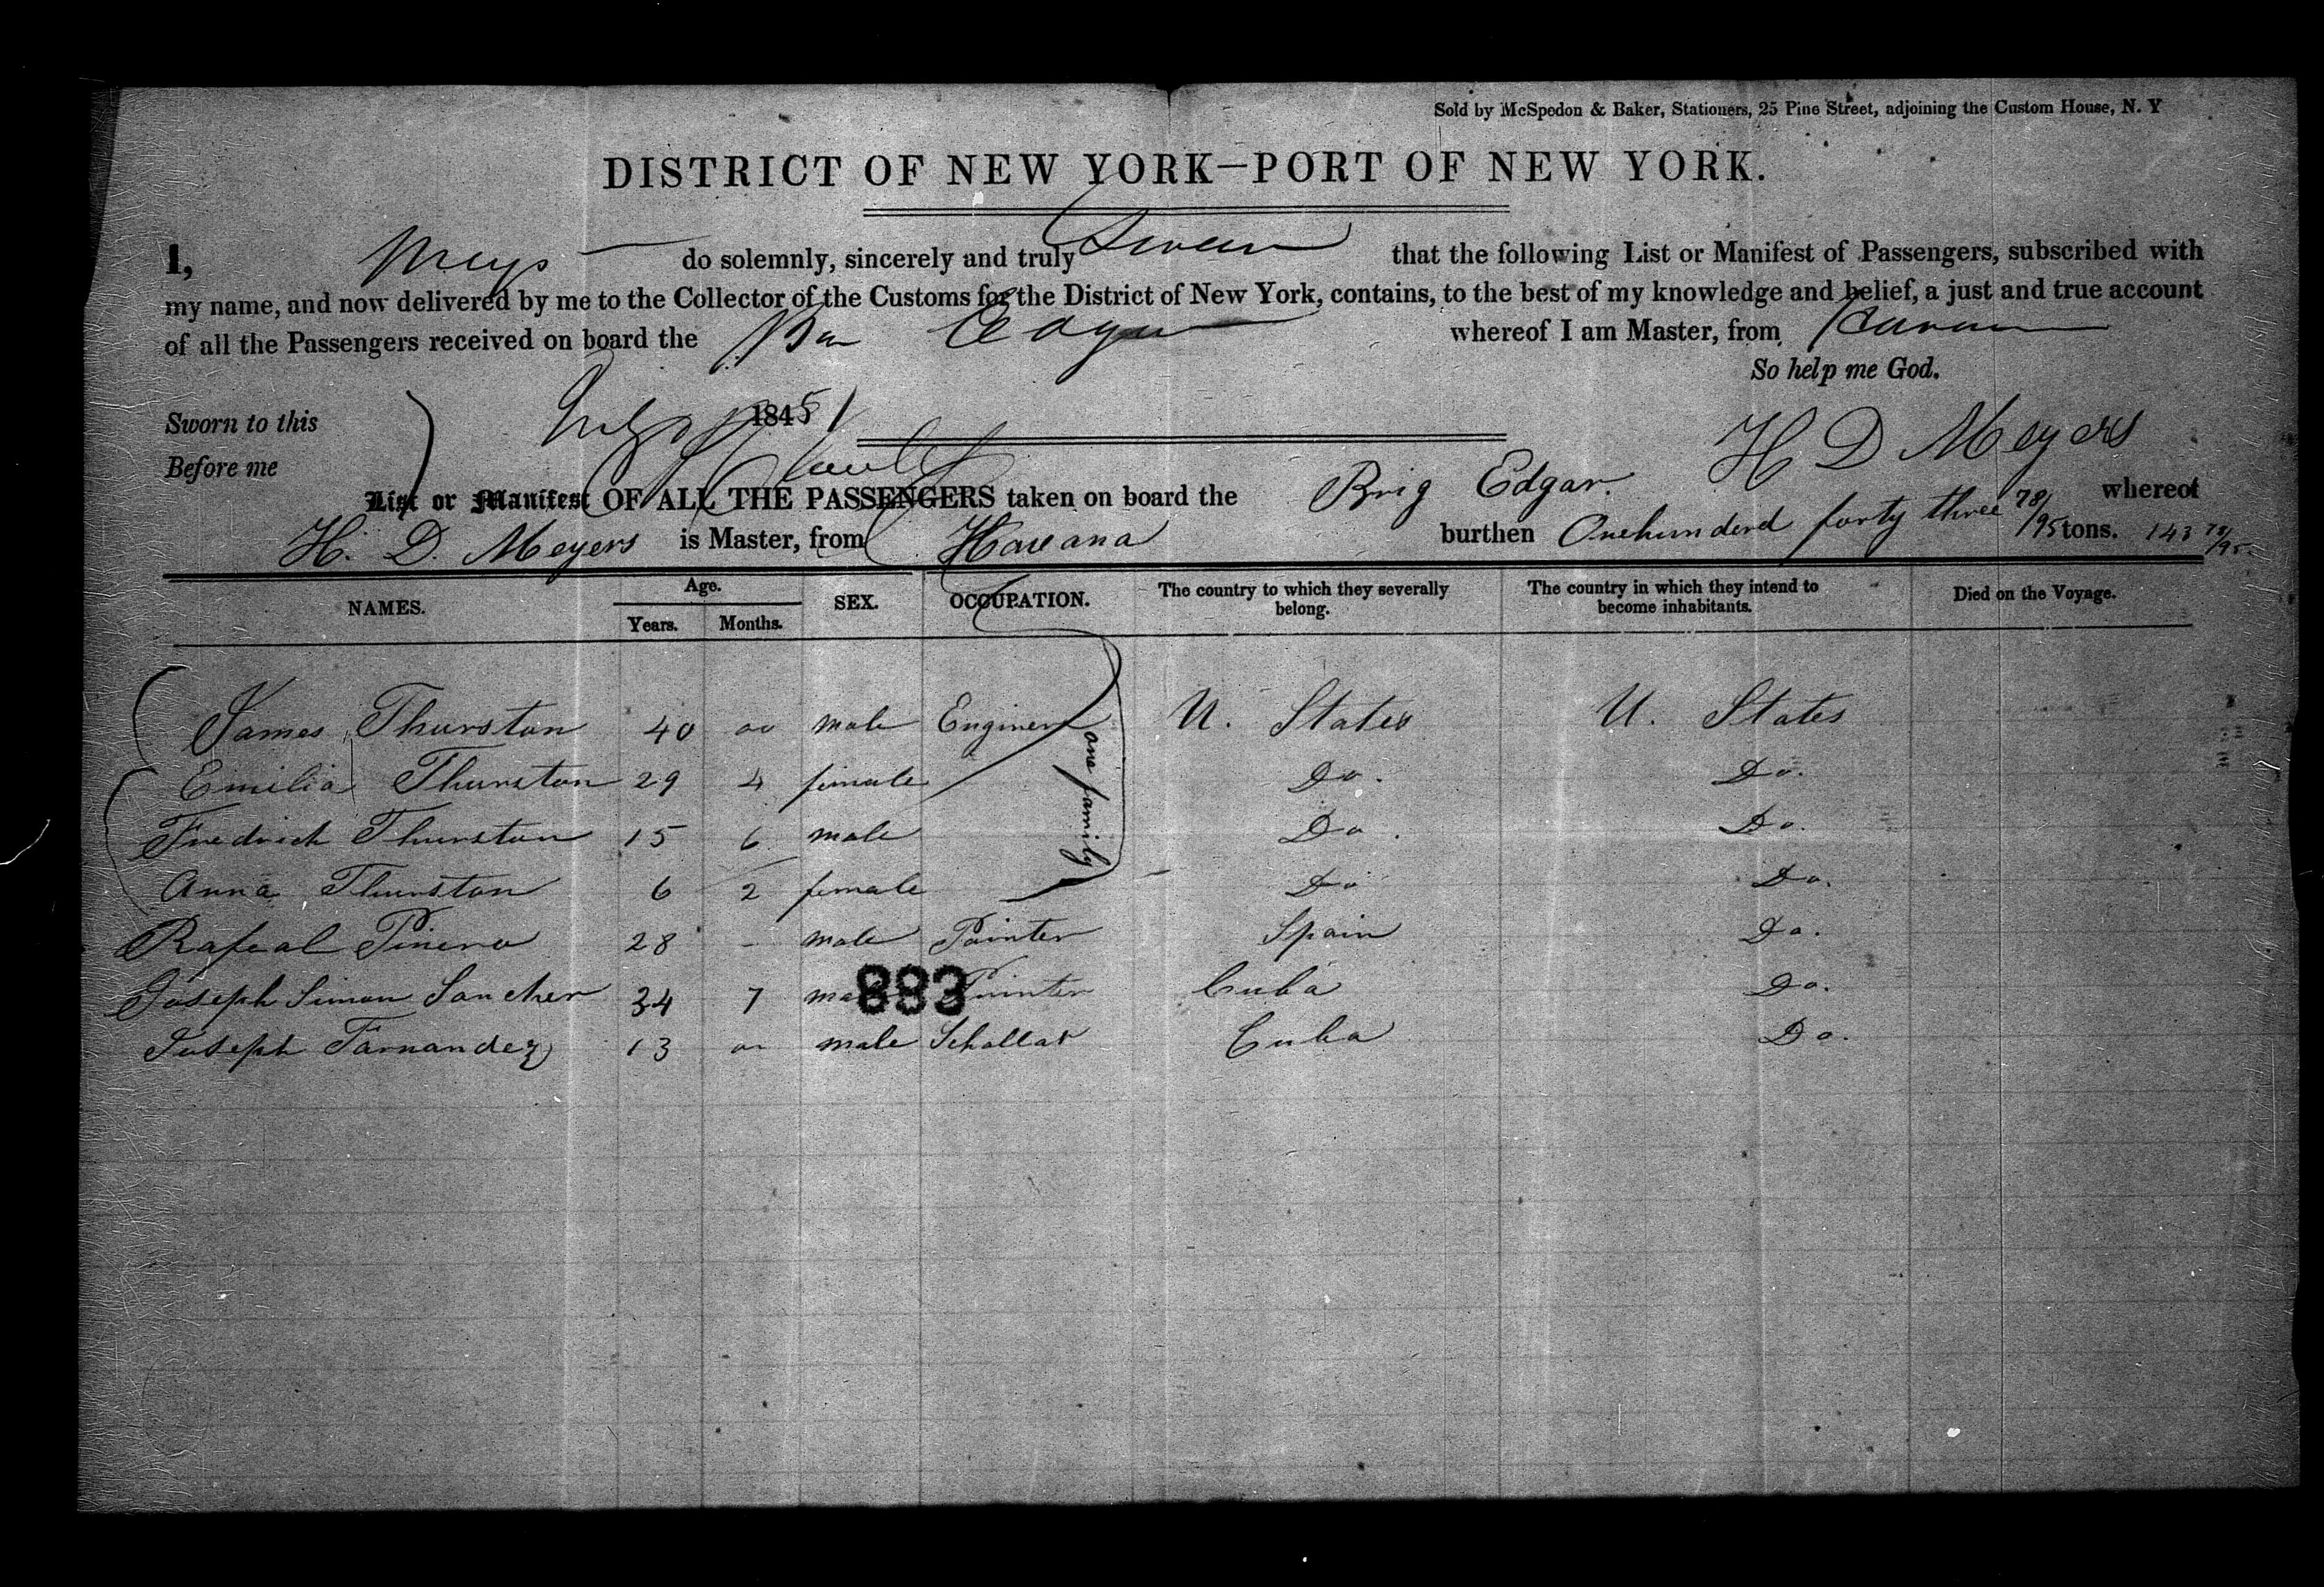 Sold by McSpedon & Baker, Stationers, 25 Pine Street, adjoining the Custom House, N. Y
DISTRICT OF NEW YORK—PORT OF NEW YORK.
I, do solemnly, sincerely and truly Swear that the following List or Manifest of Passengers, subscribed with
my name, and now delivered by me to the Collector of the Customs for the District of New York, contains, to the best of my knowledge and belief, a just and true account
of all the Passengers received on board the Edgar whereof I am Master, from Havana
So help me God.
Sworn to this 1845
Before me
H D Meyers
List or Manifest OF ALL THE PASSENGERS taken on board the Brig Edgar. whereof
H. D. Meyers is Master, from Havana burthen Onehunderd forty three 78/95 tons. 143 78/95.
NAMES. Age. Years. Months. SEX. OCCUPATION. The country to which they severally belong. The country in which they intend to become inhabitants. Died on the Voyage.
James Thurston 40 oo male Enginer U. States U. States
Emilia Thurston 29 4 female Do. Do.
one family
Fredrich Thurston 15 6 male Do. Do.
Anna Thurston 6 2 female Do Do.
Rafeal Pinero 28 - male Painter Spain Do.
Joseph Simon Sancher 34 7 male Painter Cuba Do.
883
Joseph Farnandez 13 oo male Schollar Cuba Do.